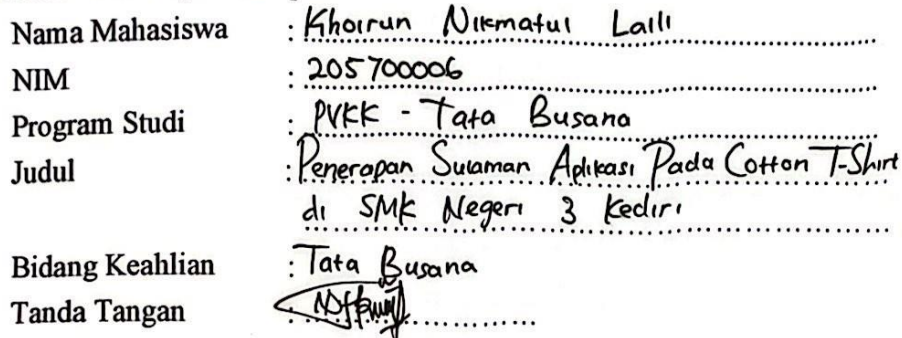 Nama Mahasiswa : Khoirun Nikmatul Laili
NIM : 205700006
Program Studi : PVKK - Tata Busana
Judul : Penerapan Sulaman Aplikasi Pada Cotton T-Shirt
di SMK Negeri 3 Kediri
Bidang Keahlian : Tata Busana
Tanda Tangan :